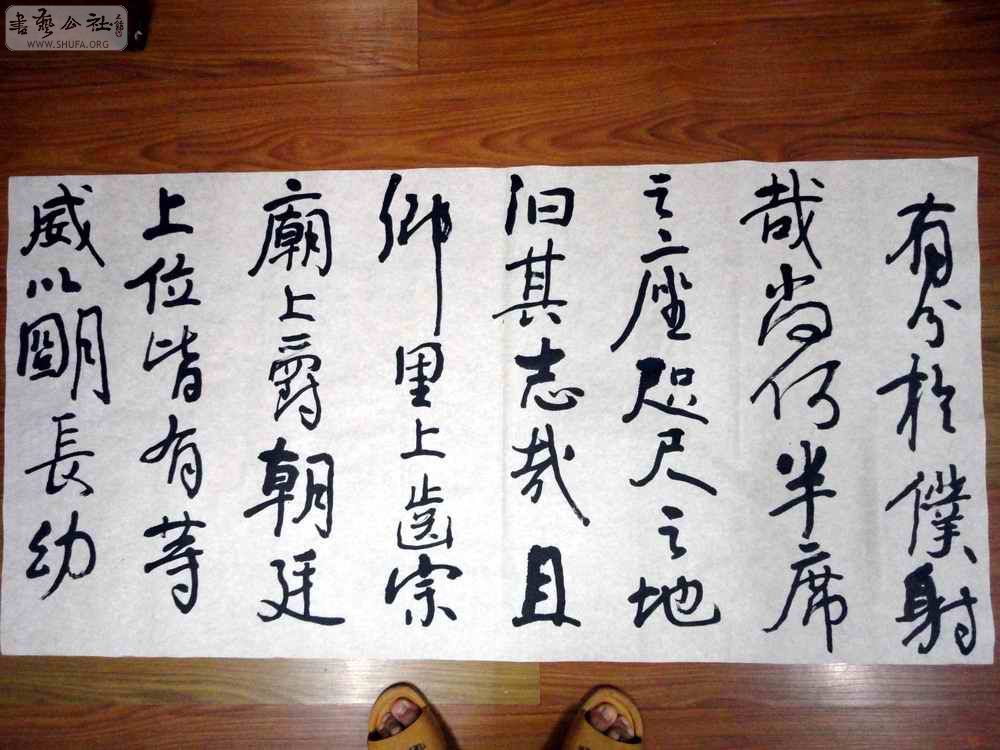 書藝公社
WWW.SHUFA.ORG
有分於僕射
哉尚何半席
之座咫尺之地
汩其志哉且
鄉里上齒宗
廟上爵朝廷
上位皆有等
威以朙長幼